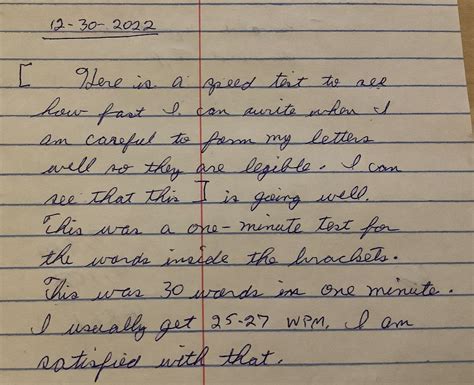 12-30-2022
[ Here is a speed test to see
how fast I can write when I
am careful to form my letters
well so they are legible. I can
see that this ] is going well.
This was a one-minute test for
the words inside the brackets.
This was 30 words in one minute.
I usually get 25-27 WPM, I am
satisfied with that.